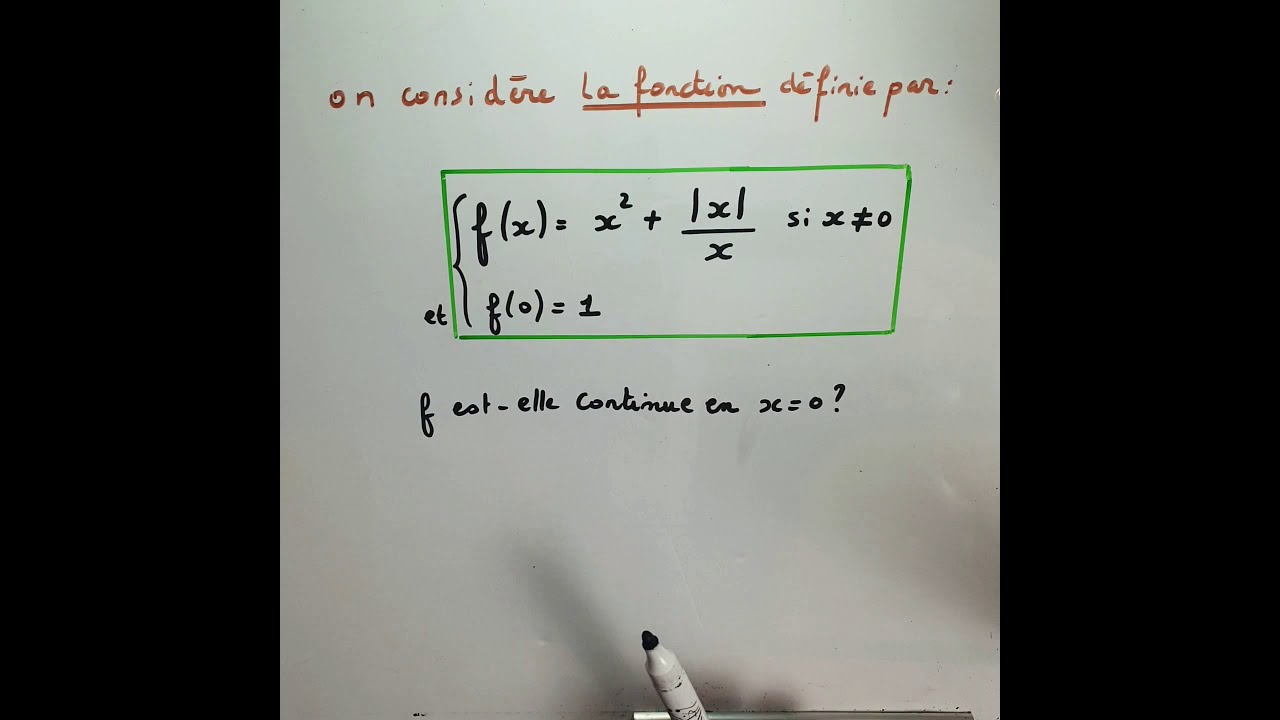 on considēre la fonction définie par:
f(x) = x² + |x|/x si x ≠ 0
et f(0) = 1
f est-elle continue en x = 0 ?